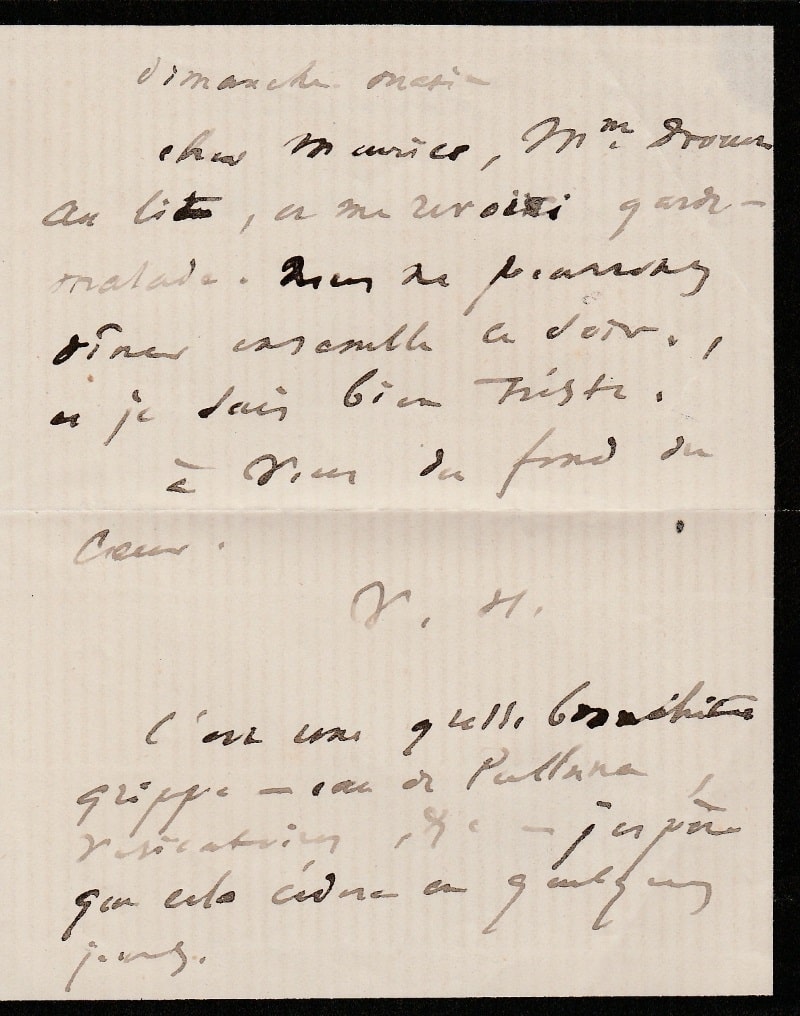 dimanche matin
cher Maurice, Mme Drouet
au lit, et me revoici garde-
malade. Nous ne pourrons
dîner ensemble ce soir,
et je suis bien triste.
à vous du fond du
cœur.
V. H.
C'est une grosse bronchite
grippe — eau de Pullna,
vésicatoires, &c — j'espère
que cela cédera en quelques
jours.